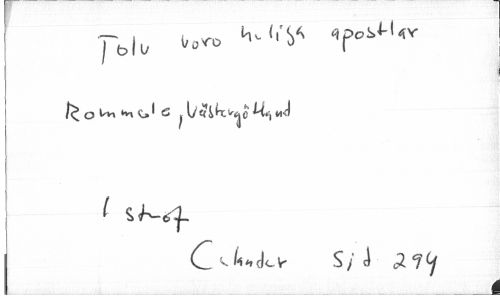 Tolv voro heliga apostlar
Rommele, Västergötland
1 strof
Celander Sid 294